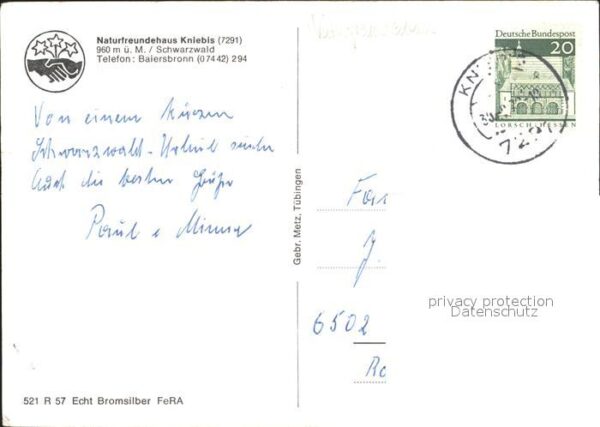 Naturfreundehaus Kniebis (7291)
960 m ü. M. / Schwarzwald
Telefon: Baiersbronn (07442) 294
Deutsche Bundespost
20
LORSCH/HESSEN
7291
Von einem kurzen
Schwarzwald-Urlaub
Euch die besten Grüße
Paul + Minna
Gebr. Metz, Tübingen
Fam
J.
6502
privacy protection
Datenschutz
521 R 57 Echt Bromsilber FeRA